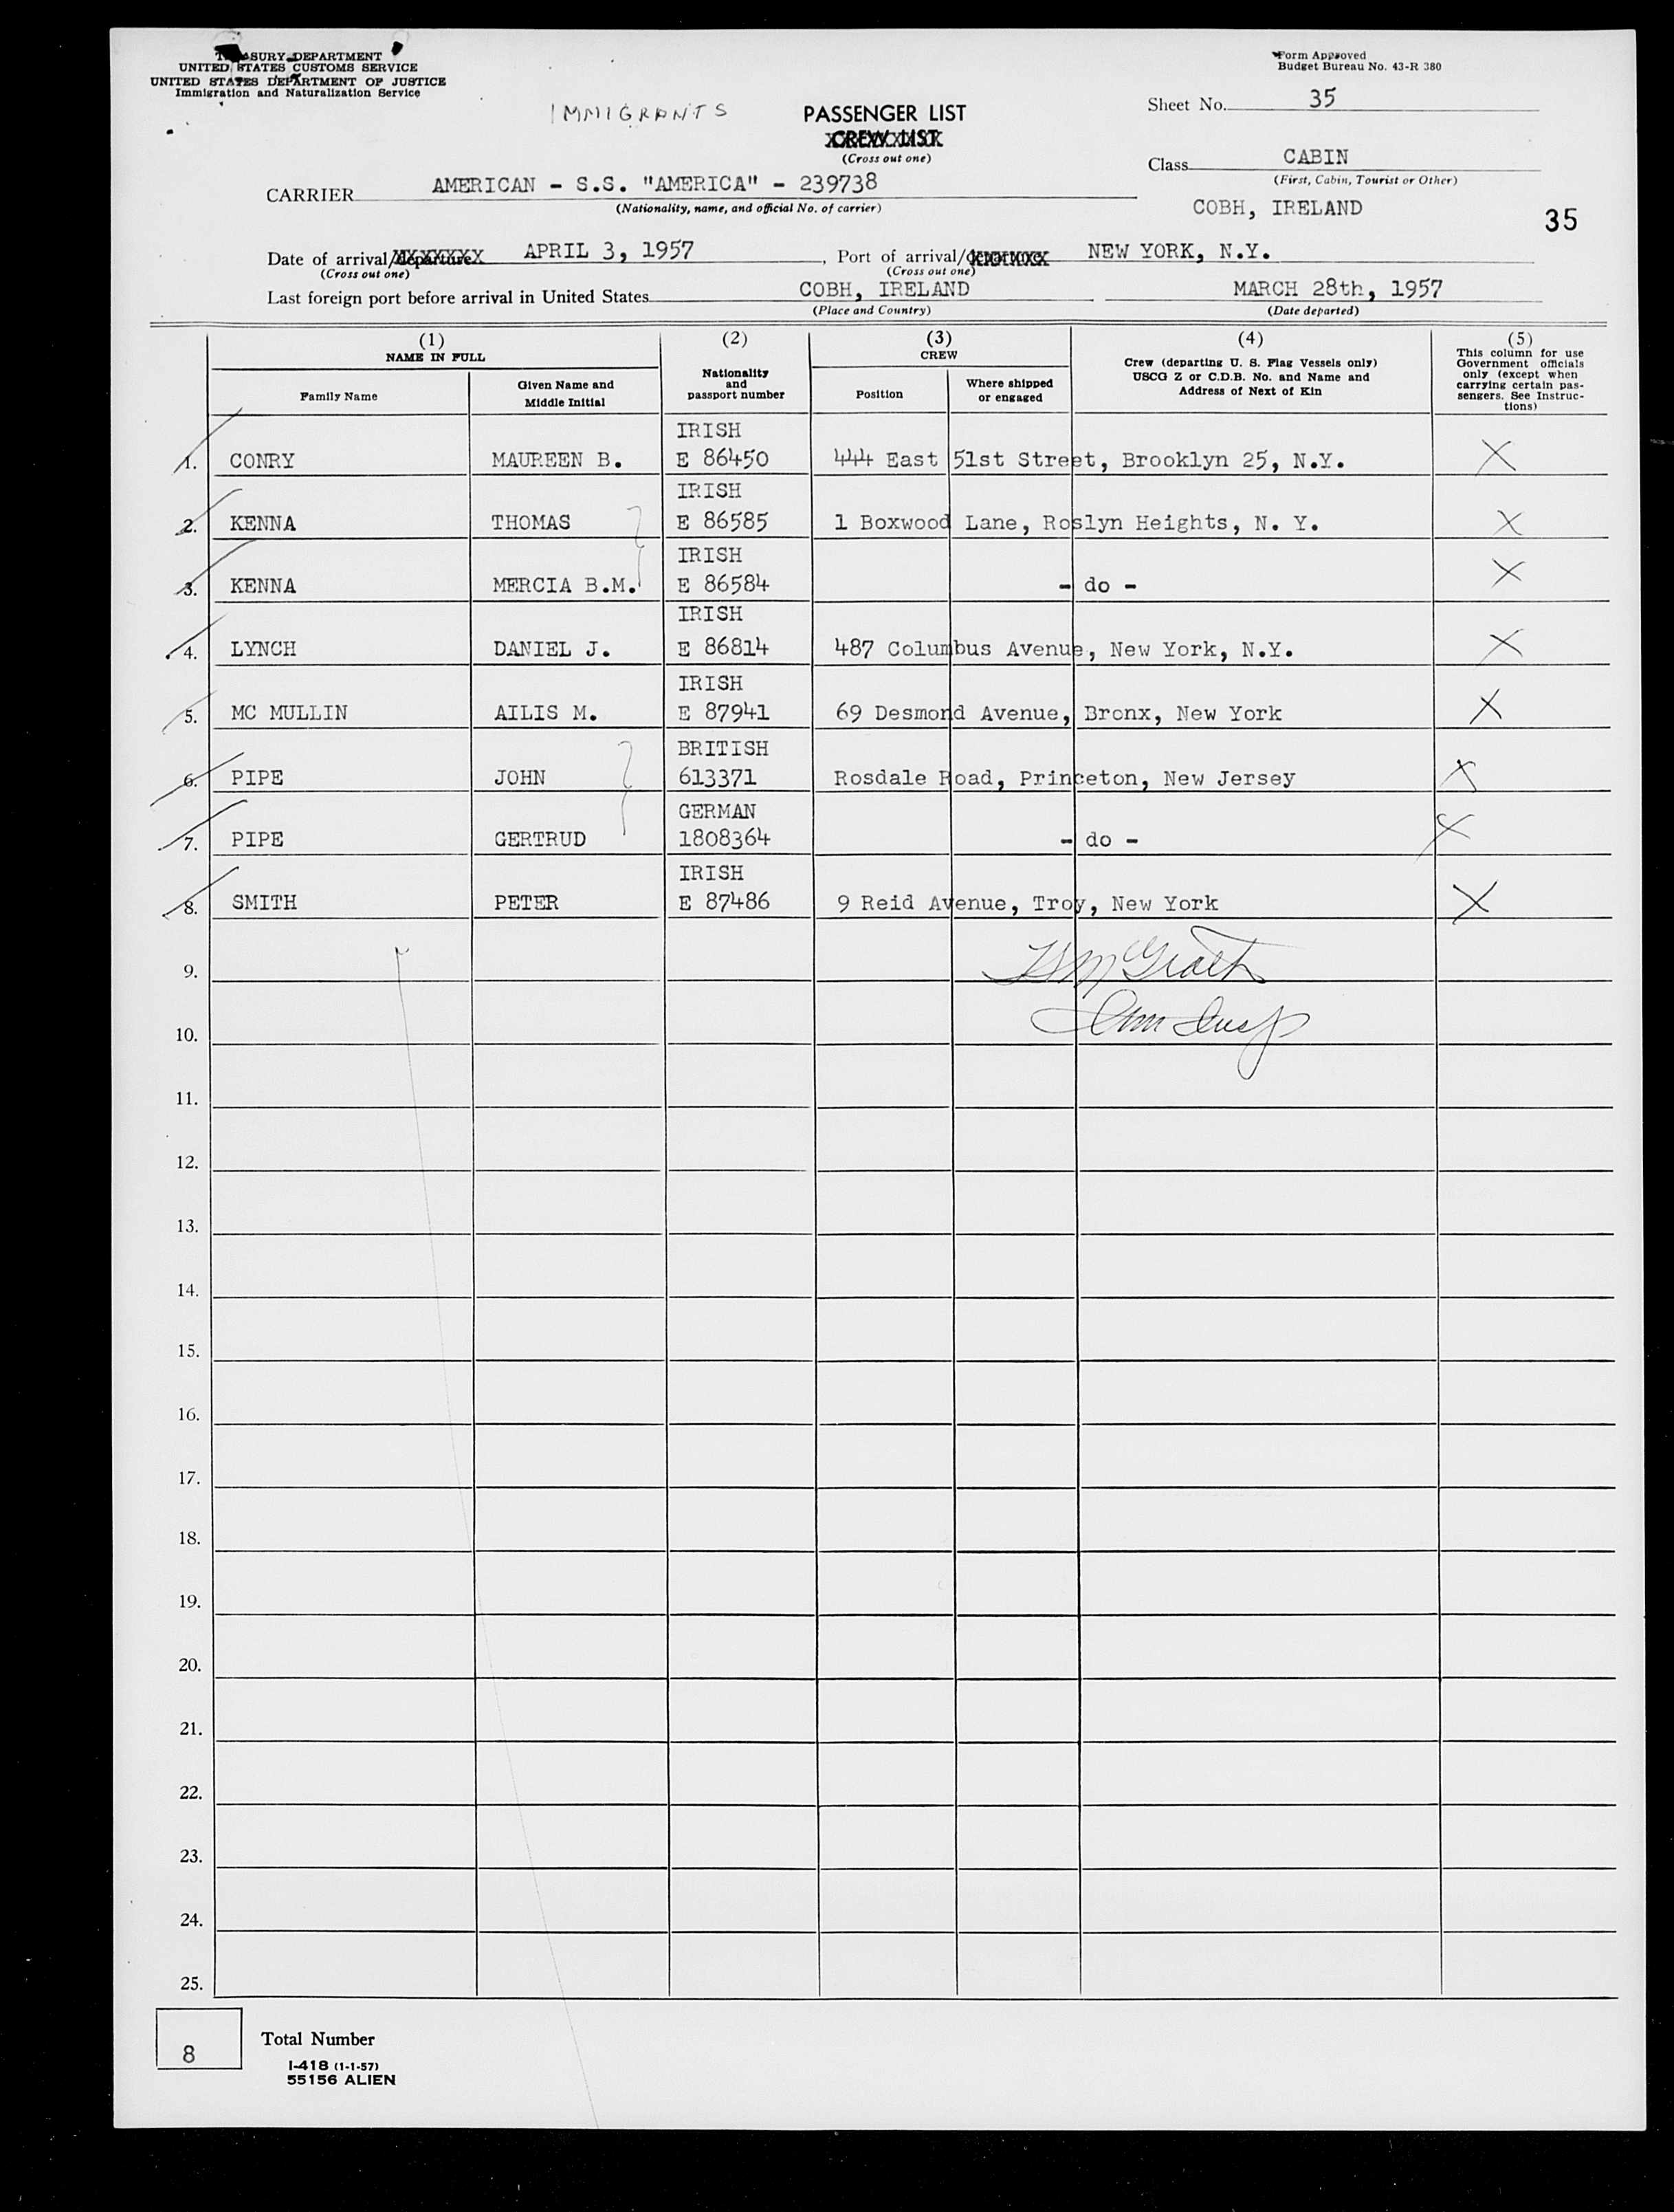 TREASURY DEPARTMENT
UNITED STATES CUSTOMS SERVICE
UNITED STATES DEPARTMENT OF JUSTICE
Immigration and Naturalization Service
Form Approved
Budget Bureau No. 43-R 380
IMMIGRANTS
PASSENGER LIST
CREW LIST
(Cross out one)
Sheet No. 35
Class CABIN
(First, Cabin, Tourist or Other)
CARRIER AMERICAN - S.S. "AMERICA" - 239738
(Nationality, name, and official No. of carrier)
COBH, IRELAND
35
Date of arrival/departure APRIL 3, 1957, Port of arrival/departure NEW YORK, N.Y.
(Cross out one) (Cross out one)
Last foreign port before arrival in United States COBH, IRELAND MARCH 28th, 1957
(Place and Country) (Date departed)
(1) (2) (3) (4) (5)
NAME IN FULL
Family Name
Given Name and
Middle Initial
Nationality
and
passport number
CREW
Position
Where shipped
or engaged
Crew (departing U. S. Flag Vessels only)
USCG Z or C.D.B. No. and Name and
Address of Next of Kin
This column for use
Government officials
only (except when
carrying certain pas-
sengers. See Instruc-
tions)
IRISH
1. CONRY MAUREEN B. E 86450 444 East 51st Street, Brooklyn 25, N.Y. X
IRISH
2. KENNA THOMAS E 86585 1 Boxwood Lane, Roslyn Heights, N. Y. X
IRISH
3. KENNA MERCIA B.M. E 86584 - do - X
IRISH
4. LYNCH DANIEL J. E 86814 487 Columbus Avenue, New York, N.Y. X
IRISH
5. MC MULLIN AILIS M. E 87941 69 Desmond Avenue, Bronx, New York X
BRITISH
6. PIPE JOHN 613371 Rosdale Road, Princeton, New Jersey X
GERMAN
7. PIPE GERTRUD 1808364 - do - X
IRISH
8. SMITH PETER E 87486 9 Reid Avenue, Troy, New York X
9. McGrath
10. Imm Insp
11.
12.
13.
14.
15.
16.
17.
18.
19.
20.
21.
22.
23.
24.
25.
8 Total Number
I-418 (1-1-57)
55156 ALIEN